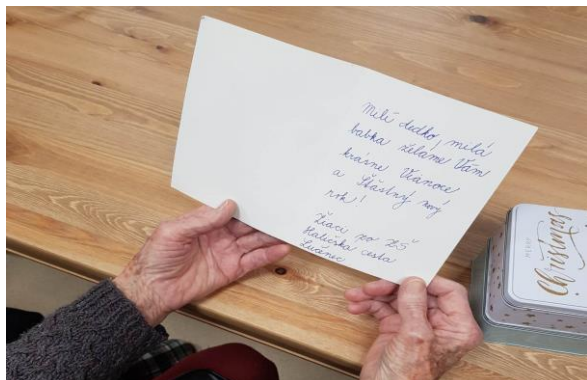 Milí dedko, milá
babka želáme Vám
krásne Vianoce
a štastný nový
rok!
Žiaci zo ZŠ
Haličska cesta
Lučenec
MERRY
Christmas